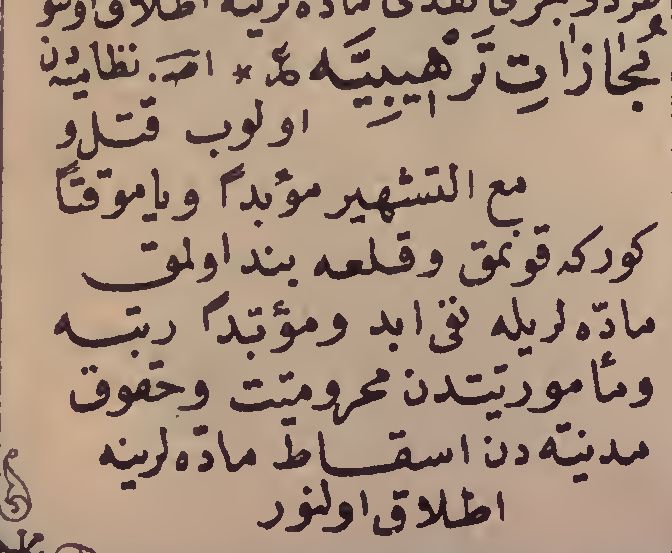 ماده لرينه اطلاق اولنو
مُجَازَاتِ تَرْهِيبِيَّه * اص. نظاميه دن
اولوب قتل و
مع التشهير مؤبداً ويا موقتاً
كوركه قونمق وقلعه بند اولمق
مادّه لريله نفى ابد ومؤبّداً رتبه
ومأموريّتدن محروميّت وحقوق
مدنيّه دن اسقاط مادّه لرينه
اطلاق اولنور